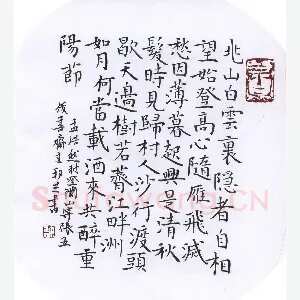 北山白雲裏隐者自相
望始登高心隨雁飛滅
愁因薄暮起興是清秋
髮時見歸村人沙行渡頭
歇天邊樹若薺江畔洲
如月何當載酒來共醉重
陽節
孟浩然秋登 寄張五
齋主